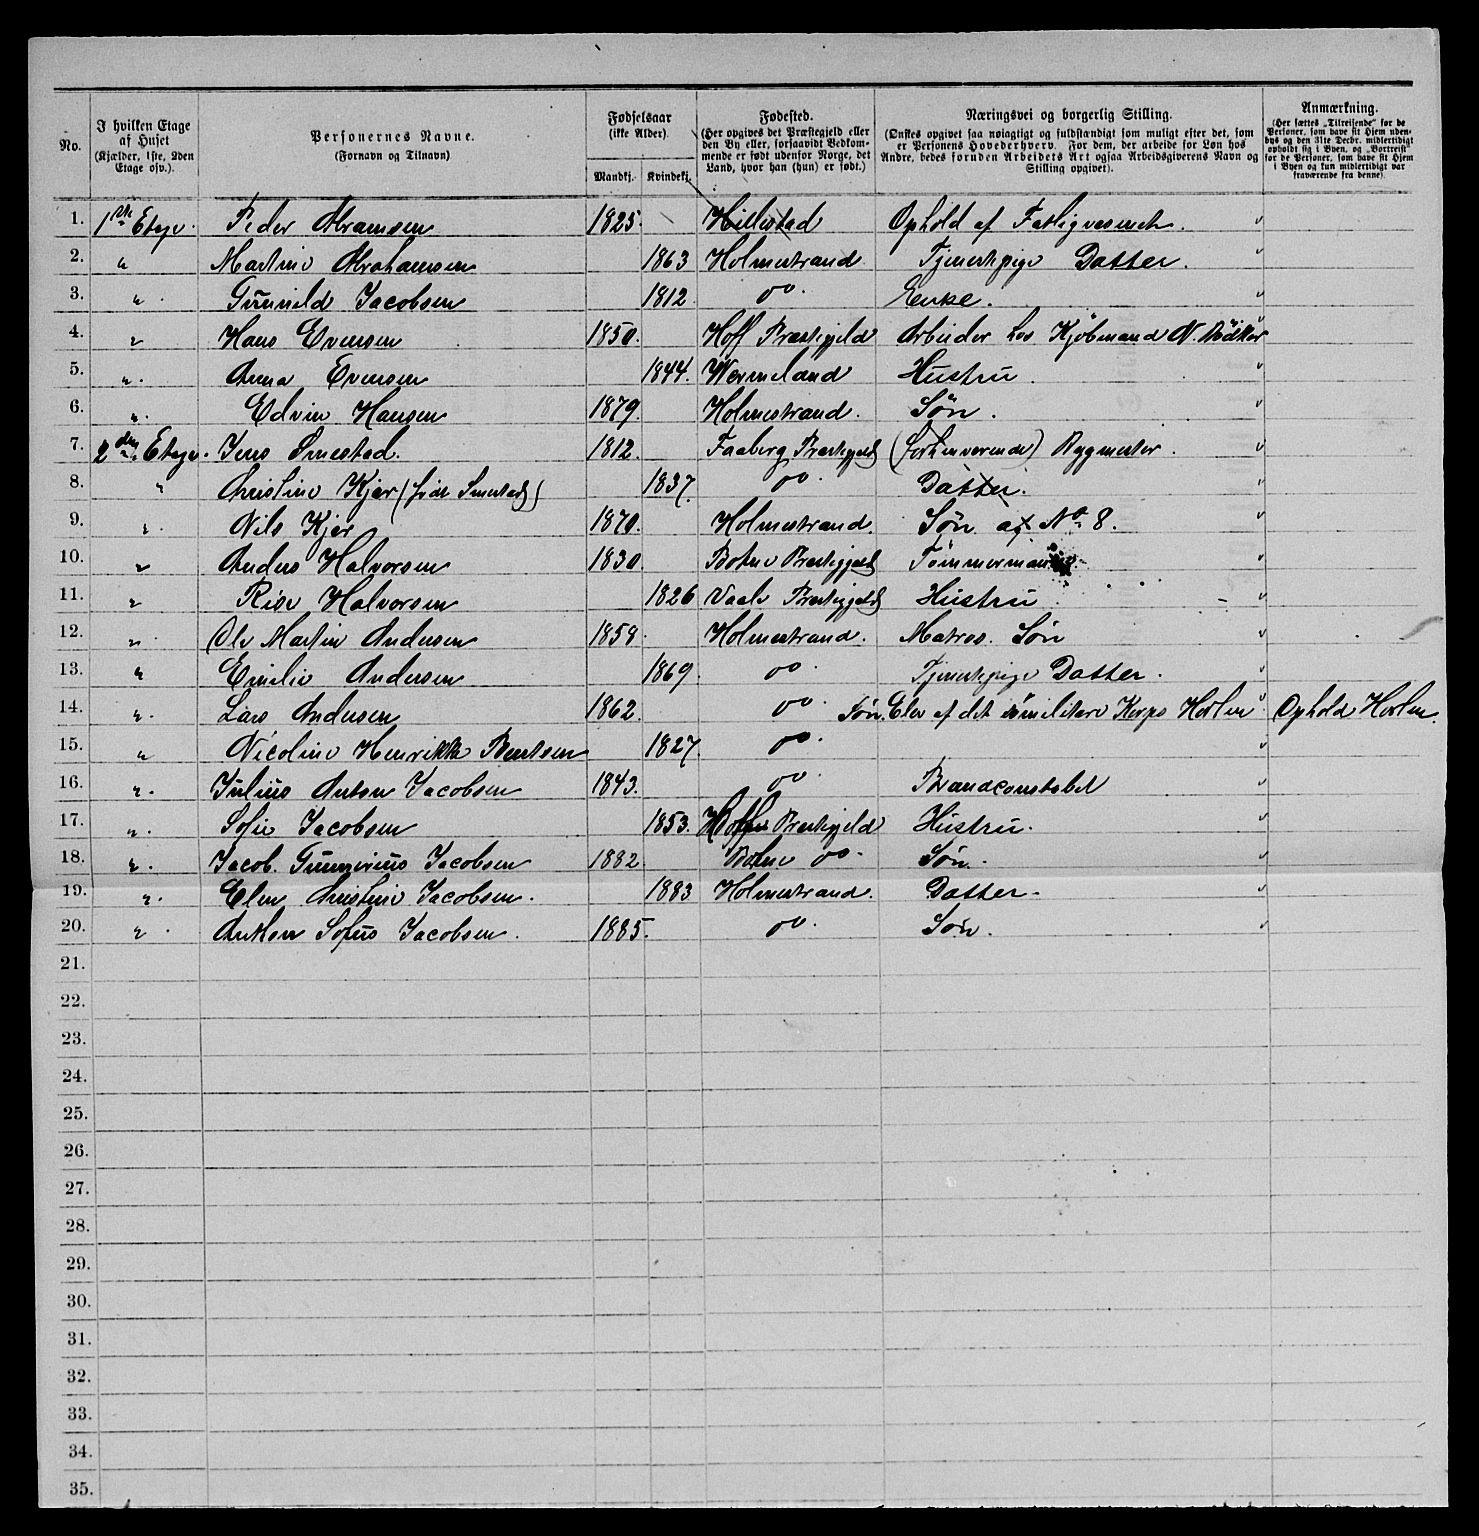 No.
I hvilken Etage af Huset (Kjælder, 1ste, 2den Etage osv.).
Personernes Navne. (Fornavn og Tilnavn)
Fødselsaar (ikke Alder).
Mandkj. Kvindekj.
Fødested. (Her opgives det Præstegjeld eller den By eller, forsaavidt Bedkommende er født udenfor Norge, det Land, hvor han (hun) er født.)
Næringsvei og borgerlig Stilling. (Ønskes opgivet saa nøiagtigt og fuldstændigt som muligt efter det, som er Personens Hovederhverv. For dem, der arbeide for Løn hos Andre, bedes foruden Arbeidets Art ogsaa Arbeidsgiverens Navn og Stilling opgivet).
Anmærkning. (Her sættes „Tilreisende" for de Personer, som have sit Hjem udenbys og den 31te Decbr. midlertidigt opholdt sig i Byen, og „Bortreist" for de Personer, som have sit Hjem i Byen og kun midlertidigt var fraværende fra denne).
1. 1ste Etage. Peder Abramsen 1825. Hillestad Ophold af Fattigvæsenet.
2. " Martine Abrahamsen 1863 Holmestrand Tjenestepige Datter.
3. " Gunnild Jacobsen 1812 do. Enke.
4. " Hans Evensen 1850. Hoff Præstegjeld Arbeider hos Kjøbmand N. Bödker
5. " Anna Evensen 1844. Wermeland Hustru.
6. " Edvin Hansen 1879. Holmestrand. Søn.
7. 2den Etage. Jens Smestad. 1812. Faaberg Præstegjeld (forhenværende) Bygmester.
8. " Christine Kjær (født Smestad) 1837. do. Datter.
9. " Nils Kjær 1870. Holmestrand. Søn af No 8.
10. " Anders Halvorsen 1830. Botne Præstegjeld Tømmermand
11. " Risе Halvorsen 1826 Vaale Præstegjeld Hustru
12. " Ole Martin Andersen 1858. Holmestrand. Matros. Søn
13. " Emilie Andersen 1869. do. Tjenestepige Datter.
14. " Lars Andersen 1862. do. Søn. Elev af det militære Korps Horten Ophold Horten.
15. " Nicoline Henrikke Bentsen 1827. do.
16. " Julius Anton Jacobsen 1843. do. Brandconstabel
17. " Sofie Jacobsen 1853. Hoff Præstegjeld Hustru.
18. " Jacob Gunnerius Jacobsen 1882. Botne do. Søn.
19. " Elen Christine Jacobsen. 1883 Holmestrand. Datter.
20. " Anthon Sofus Jacobsen. 1885. do. Søn.
21.
22.
23.
24.
25.
26.
27.
28.
29.
30.
31.
32.
33.
34.
35.